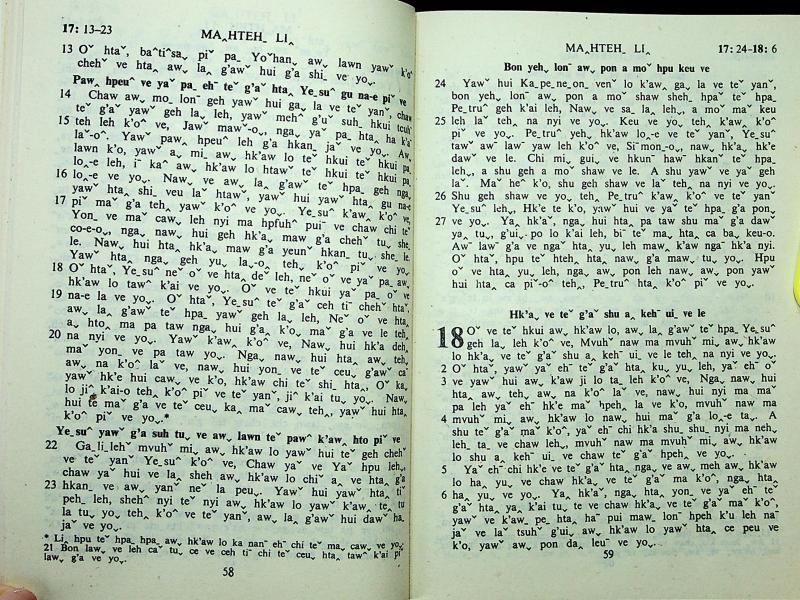 17: 13–23
MAꞈHTEHˍ LIꞈ
13 Oˇ htaˇ, baˆtiˆsaˍ piˇ paˍ Yoˇhanˍ awˬ lawn yawˇ k'oˆ
cehˇ ve htaˬ awˬ laˬ g'awˇ hui g'a shiˍ ve yoˬ.
Pawˬ hpeuˆ ve yaˇ paˍ ehˉ teˇ g'aˇ htaˬ Yeˍsuˆ gu na-e piˇ ve
14 Chaw awˬ moˍ lonˉ geh yawˇ hui gaˬ la ve teˇ yanˇ, chaw
teˇ g'aˇ yawˇ geh la leh, yawˇ mehˆ g'uˇ suhˍ hkui tcuhˇ
15 teh leh k'oˆ ve, Jawˇ mawˇ-oˬ, ngaˬ yaˇ paˍ htaˬ ha k'aˇ
laˇ-oˆ. Yawˇ pawˬ hpeuˆ leh g'a hkanˍ jaˇ ve yoˬ. Awˬ
lawn k'o, yawˇ aˬ miˍ awˬ hk'aw lo teˇ hkui teˇ hkui paˍ
loˬ-e leh, iˉ kaˆ awˬ hk'aw lo htawˇ teˇ hkui teˇ hkui paˍ
16 loˬ-e ve yoˬ. Nawˇ ve awˬ laˬ g'awˇ teˇ hpaˍ geh ngaˬ
yawˇ htaˬ shiˍ veu laˇ htawˇ, yawˇ hui yawˇ htaˬ gu na-e
17 piˇ maˇ g'a tehˬ yawˇ k'oˆ ve yoˬ. Yeˍsuˆ k'awˬ k'oˆ ve,
Yonˍ ve maˇ cawˬ leh nyi ma hpfuhˆ puiˉ ve chaw chi teˇ
co-e-oˬ, ngaˬ nawˬ hui geh hk'aˬ mawˬ g'a chehˇ tuˬ sheˍ
le. Nawˬ hui htaˬ hk'aˬ mawˬ g'a yeunˇ hkanˍ tuˬ sheˍ le.
Yawˇ htaˬ ngaˬ geh yuˬ laˍ-oˬ tehˬ k'oˆ piˇ ve yoˬ.
18 Oˇ htaˇ, Yeˍsuˆ neˇ oˇ ve htaˬ deˇ leh, neˇ oˇ ve yaˇ paˍ awˬ
hk'aw lo tawˇ k'ai ve yoˬ. Oˇ ve teˇ hkui yaˇ paˍ oˇ ve
19 na-e la ve yoˬ. Oˇ htaˇ, Yeˍsuˆ teˇ g'aˇ ceh tiˉ chehˇ htaˇ,
awˬ laˬ g'awˇ teˇ hpaˍ yawˇ geh la leh, Neˇ oˇ ve htaˬ
aˬ htoˬ ma pa taw ngaˬ hui g'aˬ k'oˬ maˇ g'a ve le teh
20 na nyi ve yoˬ. Yawˇ k'awˬ k'oˆ ve, Nawˬ hui hk'a dehˬ
maˇ yonˍ ve pa taw yoˬ. Ngaˬ nawˬ hui htaˬ awˬ tehˬ
awˬ na k'oˆ laˇ ve, nawˬ hui yonˍ ve teˇ ceuˬ g'awˇ caˇ
yawˇ hk'e hui cawˬ ve k'o, hk'aw chi teˇ shiˍ htaˬ, Oˇ kaˬ
lo jiˆ k'ai-o tehˬ k'oˆ piˇ ve teˇ yanˇ, jiˆ k'ai tuˬ yoˬ. Nawˬ
hui te maˇ g'a ve teˇ ceuˬ kaˬ maˇ cawˬ tehˬ yawˇ hui htaˬ
k'oˆ piˇ ve yoˬ.*
Yeˍsuˆ yawˇ g'a suh tuˬ ve awˬ lawn teˇ pawˆ k'awˬ hto piˇ ve
22 Gaˍliˍlehˇ mvuhˇ miˍ awˬ hk'aw lo yawˇ hui teˇ geh chehˇ
ve teˇ yanˇ Yeˍsuˆ k'oˆ ve, Chaw yaˇ ve Yaˇ hpu lehˬ,
chaw yaˇ hui ve laˬ sheh awˬ hk'aw lo chiˇ aˬ ve htaˬ g'a
23 hkanˍ ve awˬ yanˇ neˇ la peuˬ. Yawˇ hui yawˇ htaˬ tiˇ
pehˍ leh, shehˆ nyi teˇ nyi awˬ hk'aw lo yawˇ k'awˬ teˬ tu
la tuˬ yoˬ tehˬ k'oˆ ve teˇ yanˇ, awˬ laˬ g'awˇ hui daw haˍ
jaˇ ve yoˬ.
* Liˬ hpu teˇ hpaˍ hpaˍ awˬ hk'aw lo ka nanˉ ehˉ chi teˇ maˬ cawˬ ve yoˬ
21 Bon lawˬ ve leh caˇ tuˬ ce ve ceh tiˉ chi teˇ ceuˬ htaˬ tawˆ k'ai piˇ
lawˬ g'a ve yoˬ.
58
MAꞈHTEHˍ LIꞈ
17: 24–18: 6
Bon yehˬ lonˉ awˬ pon a moˇ hpu keu ve
24 Yawˇ hui Kaˍpeˍneˍonˍ venˇ lo k'awˬ gaˬ la ve teˇ yanˇ,
bon yehˬ lonˉ awˬ pon a moˇ shaw shehˍ hpaˇ teˇ hpaˍ
Peˍtruˆ geh k'ai leh, Nawˬ ve saˍ laˬ lehˬ, a moˇ maˇ keu
25 leh laˇ tehˬ na nyi ve yoˬ. Keu ve yoˬ, tehˬ k'awˬ k'oˆ
piˇ ve yoˬ. Peˍtruˆ yehˬ hk'aw loˬ-e ve teˇ yanˇ, Yeˍsuˆ
tawˇ awˬ lawˇ yaw leh k'oˆ ve, Siˉmonˍ-oˬ, nawˬ hk'aˬ hk'e
dawˇ ve le. Chi miˬ guiˬ ve hkunˉ hawˇ hkanˇ teˇ hpaˍ
lehˬ, a shu geh a moˇ shaw ve le. A shu yawˇ ve yaˇ geh
laˇ. Maˇ heˆ k'o, shu geh shaw ve laˇ tehˬ na nyi ve yoˬ.
26 Shu geh shaw ve yoˬ tehˬ Peˍtruˆ k'awˬ k'oˆ ve teˇ yanˇ
Yeˍsuˆ lehˬ, Hk'e te k'o, yawˇ hui ve yaˇ teˇ hpaˍ g'a ponˍ
27 ve yoˬ. Yaˬ hk'aˇ, ngaˬ hui htaˬ pa taw shu maˇ g'a dawˇ
yaˬ tuˬ, g'uiˬ po lo k'ai leh, biˇ teˇ maˬ htaˬ ca baˬ keu-o.
Awˇ lawˇ g'a ve ngaˇ htaˬ yuˬ leh mawˬ k'aw ngaˉ hk'a nyi.
Oˇ htaˇ, hpu teˇ hteh htaˬ nawˬ g'a mawˬ tuˬ yoˬ. Hpu
oˇ ve htaˬ yuˬ leh, ngaˬ awˬ pon leh nawˬ awˬ pon yawˇ
hui htaˬ ca piˇ-oˇ tehˬ, Peˍtruˆ htaˬ k'oˆ piˇ ve yoˬ.
Hk'aˬ ve teˇ g'aˇ shu aˬ kehˉ uiˍ ve le
18 Oˇ ve teˇ hkui awˬ hk'aw lo, awˬ laˬ g'awˇ teˇ hpaˍ Yeˍsuˆ
geh laˬ leh k'oˆ ve, Mvuhˇ naw ma mvuhˇ miˍ awˬ hk'aw
lo hk'aˬ ve teˇ g'aˇ shu aˬ kehˉ uiˍ ve le tehˬ na nyi ve yoˬ.
2 Oˇ htaˇ, yawˇ yaˇ ehˉ teˇ g'aˇ htaˬ kuˬ yuˬ leh, yaˇ ehˉ oˇ
3 ve yawˇ hui awˬ k'aw ji lo ta leh k'oˆ ve, Ngaˬ nawˬ hui
htaˬ awˬ teh awˬ na k'oˆ laˇ ve, nawˬ hui nyi ma maˇ
pa leh yaˇ ehˉ hk'e maˇ hpehˬ la ve k'o, mvuhˇ naw ma
4 mvuhˇ miˍ awˬ hk'aw lo nawˬ hui maˇ g'a loˬ-e taˍ. A
shu teˇ g'aˇ maˇ k'oˆ, yaˇ ehˉ chi shuˍ shuˍ nyi ma nehˍ
leh taˍ ve chaw lehˬ, mvuhˇ naw ma mvuhˇ miˍ awˬ hk'aw
lo shu aˬ kehˉ uiˍ ve chaw teˇ g'aˇ hpehˬ ve yoˬ.
5 Yaˇ ehˉ chi hk'e ve teˇ g'aˇ htaˬ ngaˬ ve awˬ meh awˬ hk'aw
lo haˬ yuˬ ve chaw hk'aˬ ve teˇ g'aˇ ma k'oˆ, ngaˬ htaˬ
6 haˬ yuˬ ve yoˬ. Yaˬ hk'aˇ, ngaˬ htaˬ yonˍ ve yaˇ ehˉ teˇ
g'aˇ htaˬ yaˬ k'ai tuˬ te ve chaw hk'aˬ ve teˇ g'aˇ maˇ k'oˆ,
yawˇ ve k'awˬ peˍ htaˬ haˉ pui mawˬ lonˉ hpeh k'uˬ leh naˇ
jaˇ ve laˇ tsuhˇ g'uiˬ awˬ hk'aw lo yawˇ htaˬ ce peu ve
k'o, yawˇ awˬ pon daˬ leuˉ ve yoˬ.
59